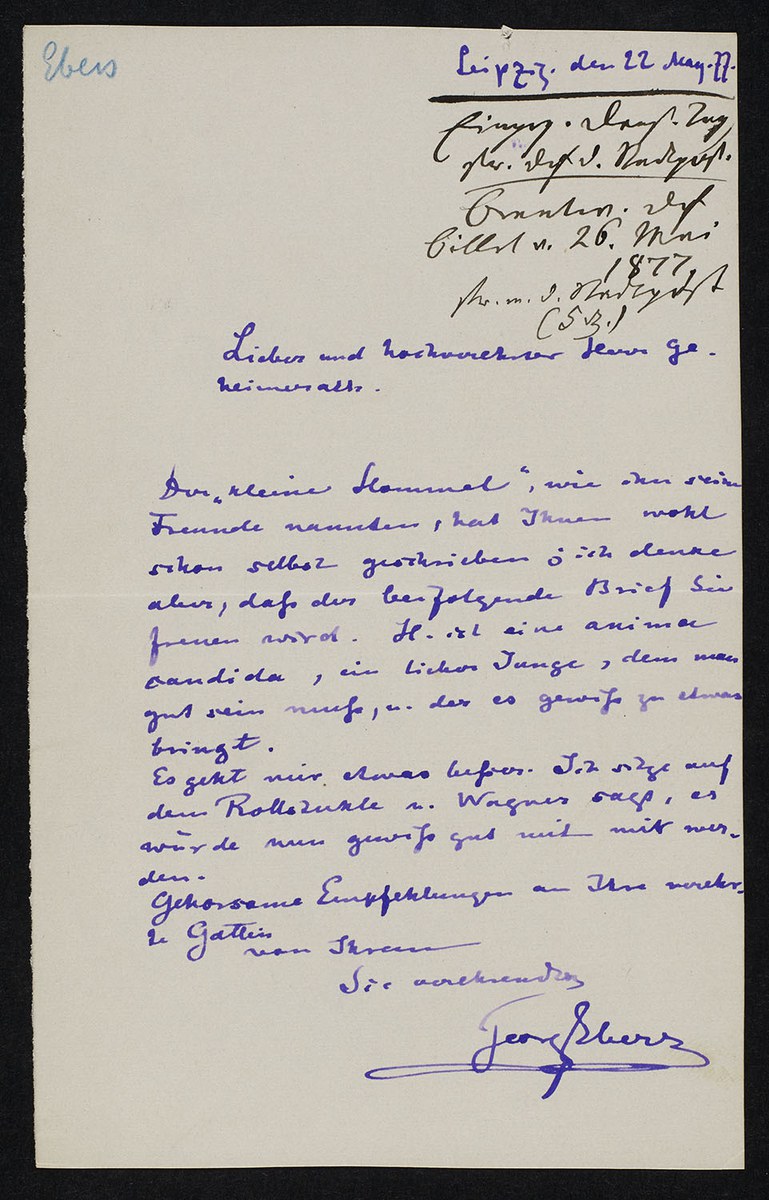 Ebers
Leipzig. den 22 May. 77.
Eingeg. Dienst. Tag
str. d. Stadtpost.
Beantw. d.
Billet v. 26. Mai
1877,
str. m. d. Stadtpost
Lieber und hochverehrter Herr Ge-
heimerath.
Der „kleine Hommel“, wie ihn seine
Freunde nannten, hat Ihnen wohl
schon selbst geschrieben; ich denke
aber, daß der beifolgende Brief Sie
freuen wird. H. ist eine anima
candida, ein lieber Junge, dem man
gut sein muß, u. der es gewiß zu etwas
bringt.
Es geht mir etwas besser. Ich sitze auf
dem Rollstuhle u. Wagner sagt, es
würde nun gewiß gut mit mir wer-
den.
Gehorsame Empfehlungen an Ihre verehr-
te Gattin
von Ihrem
Sie verehrenden
Georg Ebers